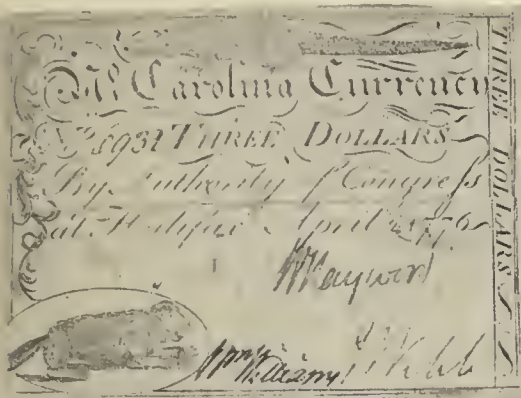 N. Carolina Currency
THREE DOLLARS
By Authority of Congress
at Halifax April 2 1776
Haywood
Williams
J Webb
THREE DOLLARS